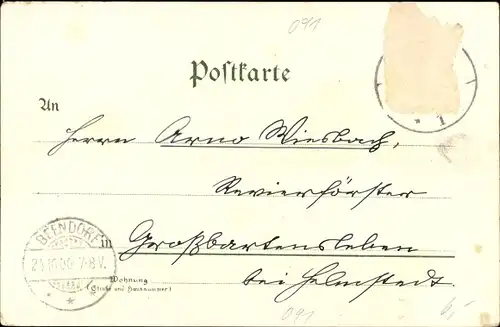 091
Postkarte
An
Herrn Arno Wiesbach,
Revierförster
in Großbartensleben
bei Helmstedt.
Wohnung
(Straße und Hausnummer)
BEENDORF
* 1
091